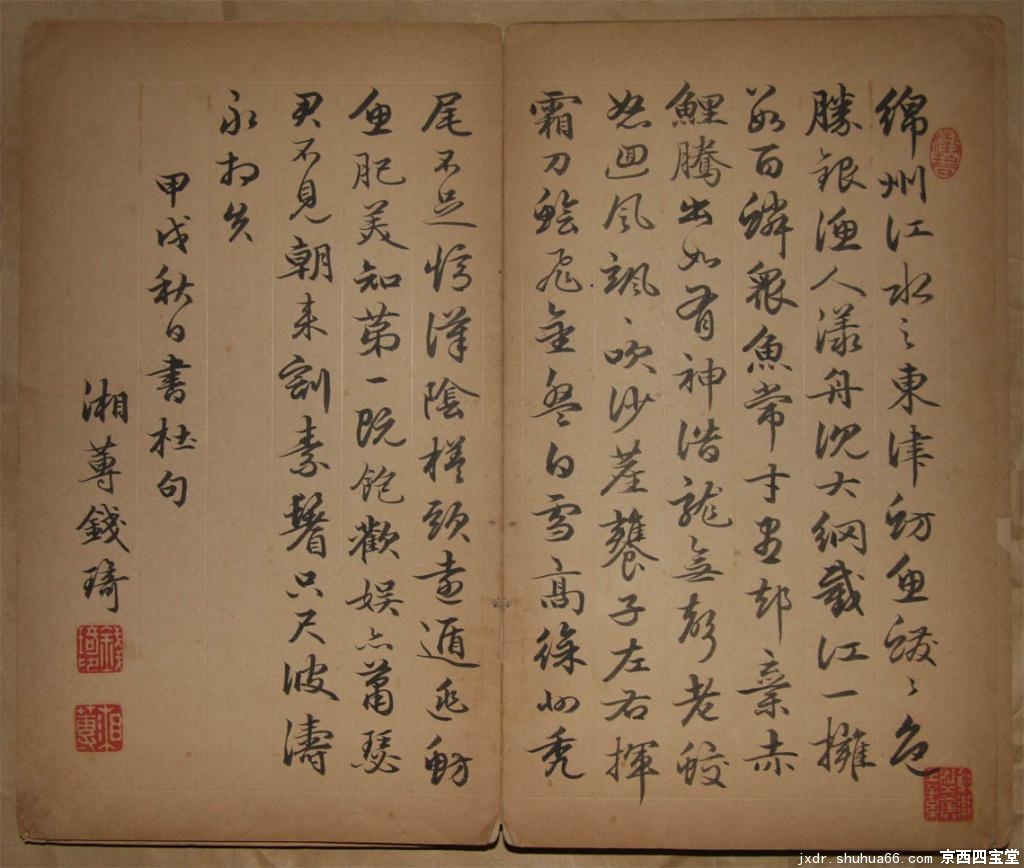 綿州江水之東津魴魚鱍〻色
勝銀漁人漾舟沈大網截江一擁
數百鱗眾魚常才盡却棄赤
鯉騰出如有神潛龍無聲老蛟
怒迴風颯〻吹沙塵饔子左右揮
霜刀鱠飛金盤白雪高徐州禿
尾不足憶漢陰槎頭遠遁逃魴
魚肥美知第一既飽歡娛亦蕭瑟
君不見朝來割素鬐只尺波濤
永相失
甲戌秋日書杜句
湘蓴錢琦
湘蓴
jxdr.shuhua66.com 京西四宝堂